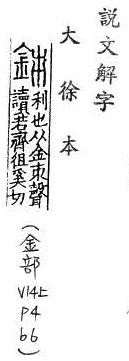 說文解字
大徐本
利也从金聲
讀若齊徂奚切
(金部 V14上 P4 b6)